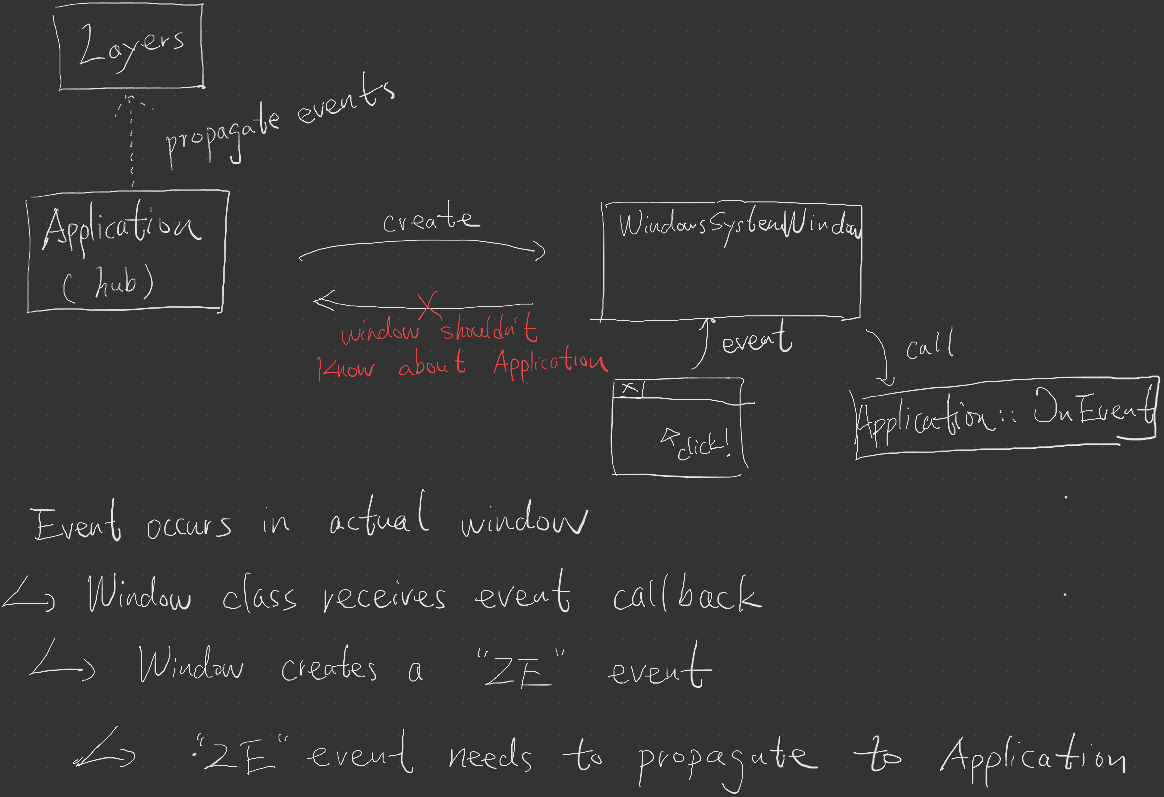 Layers
propagate events
Application
(hub)
create
window shouldn't
know about Application
WindowsSystemWindow
event
call
X
click!
Application::OnEvent
Event occurs in actual window
Window class receives event callback
Window creates a "ZE" event
"ZE" event needs to propagate to Application